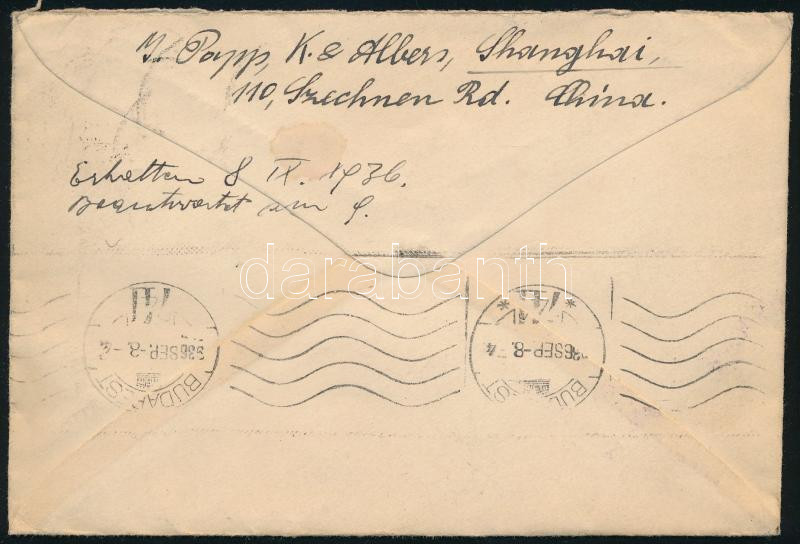 Papp, K. & Albers, Shanghai,
110, Szechuen Rd. China.
Erhalten 8 IX. 1936.
Beantwortet am 9.
darabanth
936 SEP. -8.
BUDAPEST
936 SEP. -8.
BUDAPEST